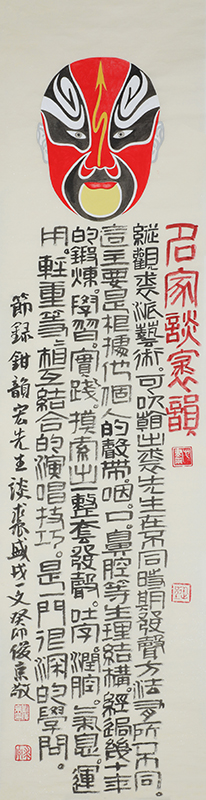 名家談裘韻
縱觀裘派藝術。可以看出裘先生在不同時期發聲方法有所不同。
這主要是根據他個人的聲帶。咽。口。鼻腔等生理結構。經過幾十年
的鍛煉。學習。實踐。摸索出一整套發聲。吐字。潤腔。氣息。運
用。輕重等相互結合的演唱技巧。是一門很深的學問。
節錄鉗韻宏先生談裘盛戎一文癸卯俊京敬